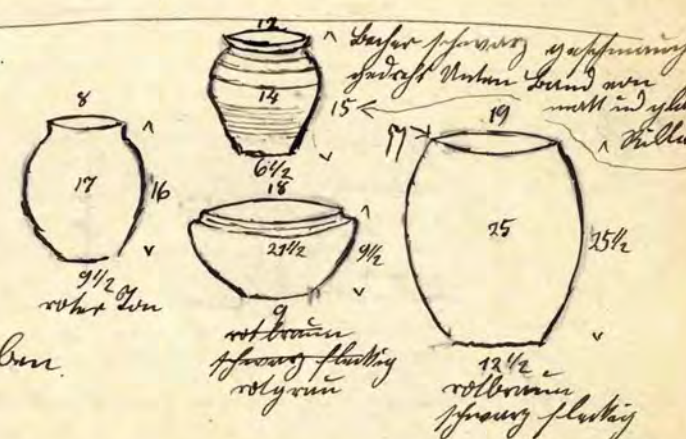 12
Becher schwarz geschmaucht
gedreht Unten Band von
matt und
14
15
6 1/2
8
17
16
9 1/2
roter Ton
18
21 1/2
9 1/2
9
rotbraun
schwarz fleckig
rotgrau
19
25
25 1/2
12 1/2
rotbraun
schwarz fleckig
ben.